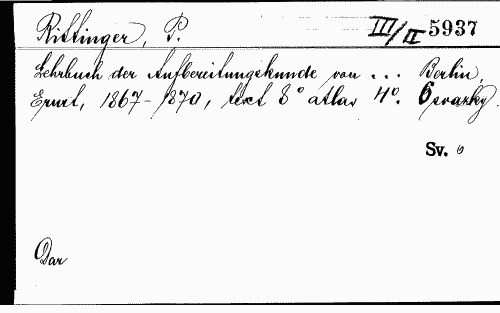 Rittinger, P. III/II 5937
Lehrbuch der Aufbereitungskunde von ... Berlin,
Ernst, 1867-1870, text 8° atlas 4°. 6 svazky.
Sv. 6
Dar